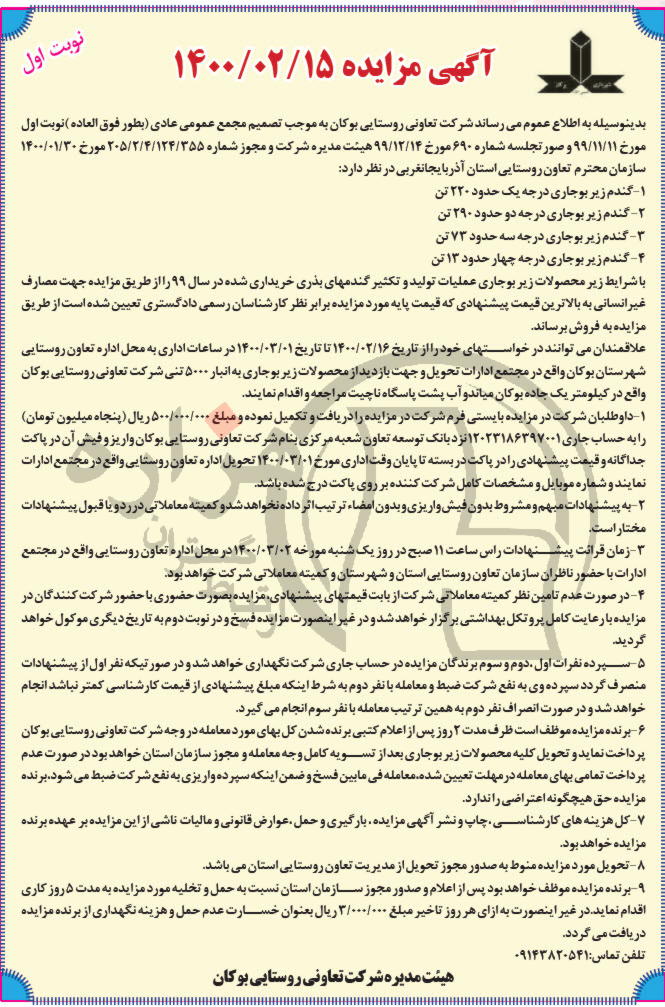 نوبت اول
آگهی مزایده ۱۴۰۰/۰۲/۱۵
بدینوسیله به اطلاع عموم می رساند شرکت تعاونی روستایی بوکان به موجب تصمیم مجمع عمومی عادی (بطور فوق العاده )نوبت اول
مورخ ۹۹/۱۱/۱۱ و صورتجلسه شماره ۶۹۰ مورخ ۹۹/۱۲/۱۴ هیئت مدیره شرکت و مجوز شماره ۲۰۵/۲/۴/۱۲۴/۳۵۵ مورخ ۱۴۰۰/۰۱/۳۰
سازمان محترم تعاون روستایی استان آذربایجانغربی در نظر دارد:
۱-گندم زیر بوجاری درجه یک حدود ۲۲۰ تن
۲- گندم زیر بوجاری درجه دو حدود ۲۹۰ تن
۳- گندم زیر بوجاری درجه سه حدود ۷۳ تن
۴- گندم زیر بوجاری درجه چهار حدود ۱۳ تن
با شرایط زیر محصولات زیر بوجاری عملیات تولید و تکثیر گندمهای بذری خریداری شده در سال ۹۹ را از طریق مزایده جهت مصارف
غیرانسانی به بالاترین قیمت پیشنهادی که قیمت پایه مورد مزایده برابر نظر کارشناسان رسمی دادگستری تعیین شده است از طریق
مزایده به فروش برساند.
علاقمندان می توانند در خواستهای خود را از تاریخ ۱۴۰۰/۰۲/۱۶ تا تاریخ ۱۴۰۰/۰۳/۰۱ در ساعات اداری به محل اداره تعاون روستایی
شهرستان بوکان واقع در مجتمع ادارات تحویل و جهت بازدید از محصولات زیر بوجاری به انبار ۵۰۰۰ تنی شرکت تعاونی روستایی بوکان
واقع در کیلومتر یک جاده بوکان میاندوآب پشت پاسگاه ناچیت مراجعه و اقدام نمایند.
۱-داوطلبان شرکت در مزایده بایستی فرم شرکت در مزایده را دریافت و تکمیل نموده و مبلغ ۵۰۰/۰۰۰/۰۰۰ ریال (پنجاه میلیون تومان)
را به حساب جاری ۱۲۰۲۳۱۸۶۳۹۷۰۰۱ نزد بانک توسعه تعاون شعبه مرکزی بنام شرکت تعاونی روستایی بوکان واریز و فیش آن در پاکت
جداگانه و قیمت پیشنهادی را در پاکت در بسته تا پایان وقت اداری مورخ ۱۴۰۰/۰۳/۰۱ تحویل اداره تعاون روستایی واقع در مجتمع ادارات
نمایند و شماره موبایل و مشخصات کامل شرکت کننده بر روی پاکت درج شده باشد.
۲-به پیشنهادات مبهم و مشروط بدون فیش واریزی و بدون امضاء ترتیب اثر داده نخواهد شد و کمیته معاملاتی در رد و یا قبول پیشنهادات
مختار است.
۳-زمان قرائت پیشنهادات راس ساعت ۱۱ صبح در روز یک شنبه مورخه ۱۴۰۰/۰۳/۰۲ در محل اداره تعاون روستایی واقع در مجتمع
ادارات با حضور ناظران سازمان تعاون روستایی استان و شهرستان و کمیته معاملاتی شرکت خواهد بود.
۴-در صورت عدم تامین نظر کمیته معاملاتی شرکت از بابت قیمتهای پیشنهادی، مزایده بصورت حضوری با حضور شرکت کنندگان در
مزایده با رعایت کامل پروتکل بهداشتی برگزار خواهد شد و در غیر اینصورت مزایده فسخ و در نوبت دوم به تاریخ دیگری موکول خواهد
گردید.
۵-سپرده نفرات اول ،دوم و سوم برندگان مزایده در حساب جاری شرکت نگهداری خواهد شد و در صورتیکه نفر اول از پیشنهادات
منصرف گردد سپرده وی به نفع شرکت ضبط و معامله با نفر دوم به شرط اینکه مبلغ پیشنهادی از قیمت کارشناسی کمتر نباشد انجام
خواهد شد و در صورت انصراف نفر دوم به همین ترتیب معامله با نفر سوم انجام می گیرد.
۶-برنده مزایده موظف است ظرف مدت ۲ روز پس از اعلام کتبی برنده شدن کل بهای مورد معامله در وجه شرکت تعاونی روستایی بوکان
پرداخت نماید و تحویل کلیه محصولات زیر بوجاری بعد از تسویه کامل وجه معامله و مجوز سازمان استان خواهد بود در صورت عدم
پرداخت تمامی بهای معامله در مهلت تعیین شده، معامله فی مابین فسخ و ضمن اینکه سپرده واریزی به نفع شرکت ضبط می شود، برنده
مزایده حق هیچگونه اعتراضی را ندارد.
۷-کل هزینه های کارشناسی ،چاپ و نشر آگهی مزایده ، بارگیری و حمل ،عوارض قانونی و مالیات ناشی از این مزایده بر عهده برنده
مزایده خواهد بود.
۸-تحویل مورد مزایده منوط به صدور مجوز تحویل از مدیریت تعاون روستایی استان می باشد.
۹-برنده مزایده موظف خواهد بود پس از اعلام و صدور مجوز سازمان استان نسبت به حمل و تخلیه مورد مزایده به مدت ۵ روز کاری
اقدام نماید.در غیر اینصورت به ازای هر روز تاخیر مبلغ ۳/۰۰۰/۰۰۰ ریال بعنوان خسارت عدم حمل و هزینه نگهداری از برنده مزایده
دریافت می گردد.
تلفن تماس:۰۹۱۴۳۸۲۰۵۴۱
هیئت مدیره شرکت تعاونی روستایی بوکان